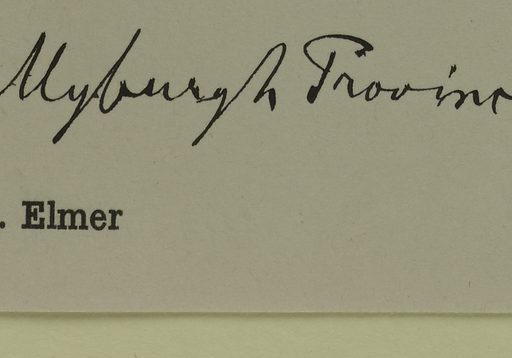 Myburgh Provinc
. Elmer